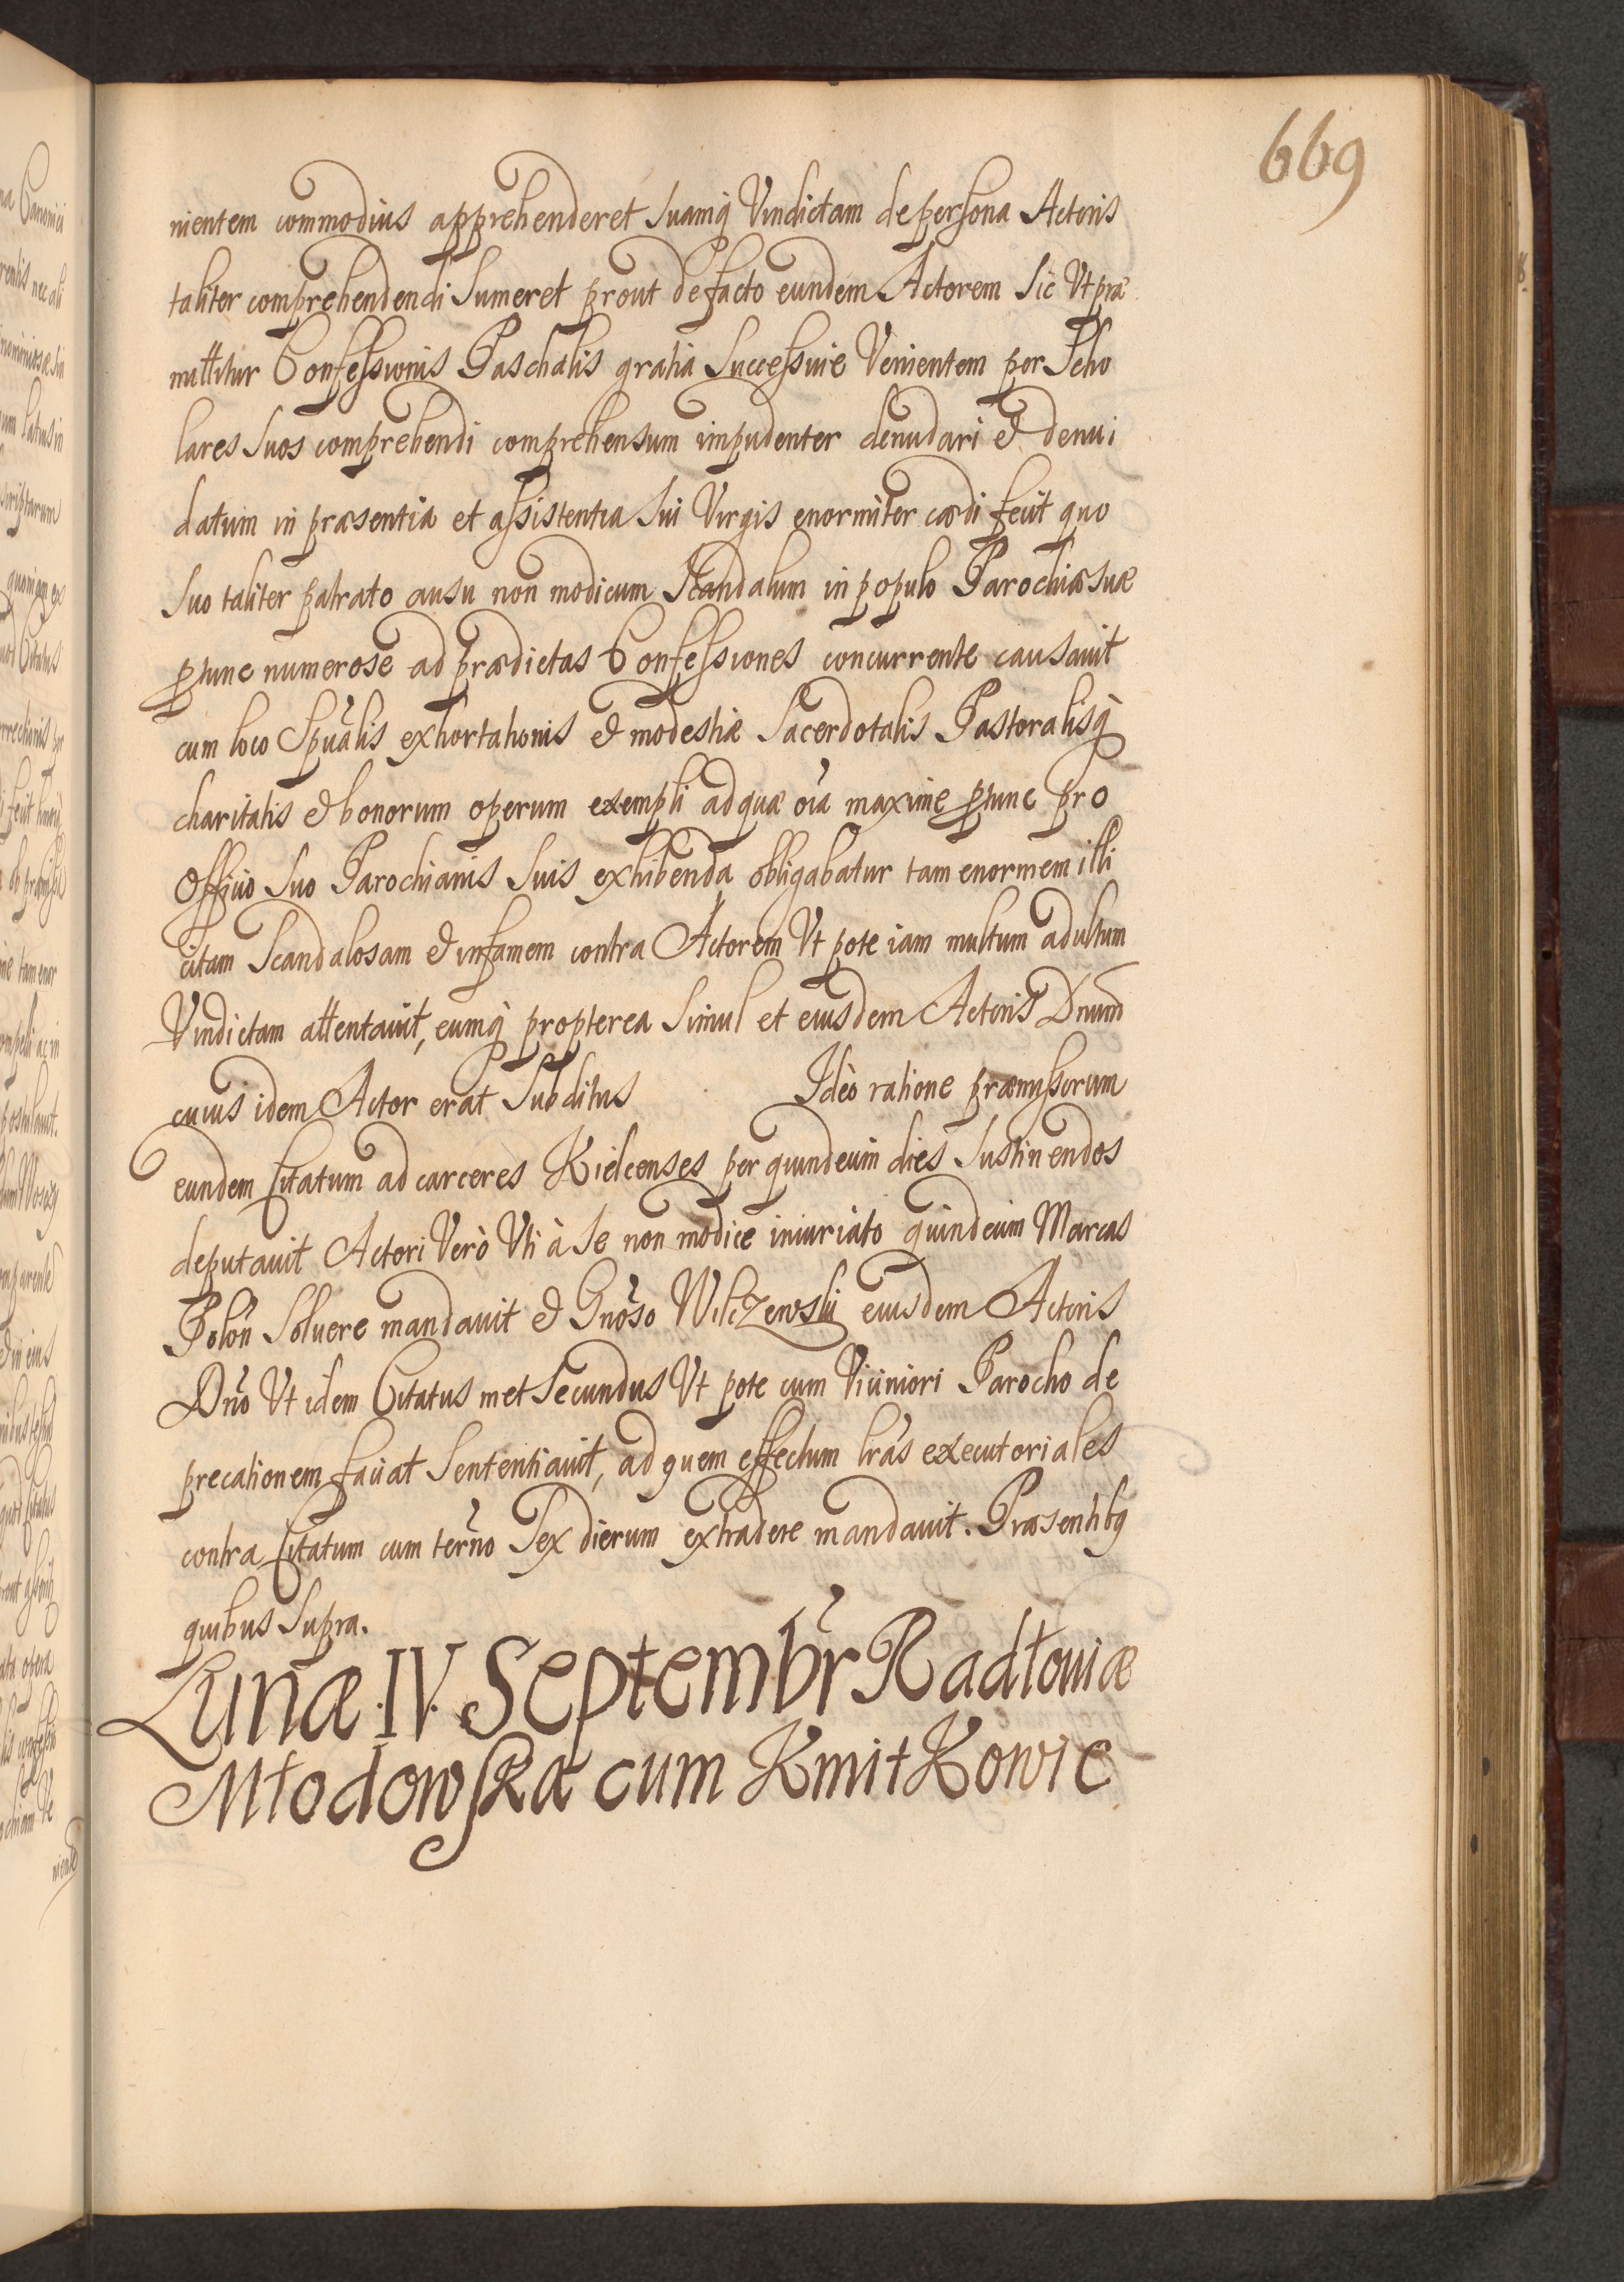 669
nientem commodius apprehenderet suamq̃ Vindictam de persona Actoris
taliter comprehendendi sumeret prout de facto eundem Actorem sic Vt præ
mittitur Confessionis Paschalis gratia Successiue Venientem per Scho
lares suos comprehendi comprehensum impudenter denudari et denu
datum in præsentia et assistentia sui Virgis enormiter cædi fecit quo
suo taliter patrato ausu non modicum Scandalum in populo Parochiæ suæ
ptunc numerose ad prædictas Confessiones concurrente causauit
cum loco Spũalis exhortationis et modestiæ Sacerdotalis Pastoralisq̃
charitatis et bonorum operum exempli ad quæ oĩa maxime ptunc pro
Officio suo Parochianis suis exhibenda obligabatur tam enormem illi
citam Scandalosam et infamem contra Actorem Vt pote iam multum adultum
Vindictam attentauit, eumq̃ propterea simul et eiusdem Actoris Dnum
cuius idem Actor erat Subditus Ideò ratione præmissorum
eundem Citatum ad carceres Kielcenses per quindecim dies sustinendos
deputauit Actori Verò Vti à se non modice iniuriato quindecim Marcas
Polon̄ Soluere mandauit et Gnõso Wilczewski eiusdem Actoris
Dnõ Vt idem Citatus met secundus Vt pote cum Viciniori Parocho de
precationem faciat Sententiauit, ad quem effectum lrãs executoriales
contra Citatum cum terñno Sex dierum extradere mandauit. Præsentibꝫ
quibus supra.
Lunæ .IV. Septembr̃ Radłouiæ
Młodowska cum KmitKowic